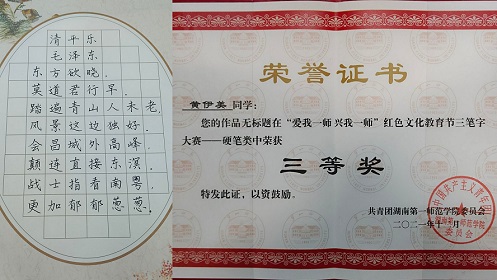 清平乐
毛泽东
东方欲晓，
莫道君行早。
踏遍青山人未老，
风景这边独好。
会昌城外高峰，
颠连直接东溟。
战士指看南粤，
更加郁郁葱葱。
荣誉证书
黄伊美 同学：
您的作品无标题在“爱我一师 兴我一师”红色文化教育节三笔字
大赛——硬笔类中荣获
三等奖
特发此证，以资鼓励。
共青团湖南第一师范学院委员会
二〇二一年十 月
中国共产主义青年团
湖南第一师范学院
委员会